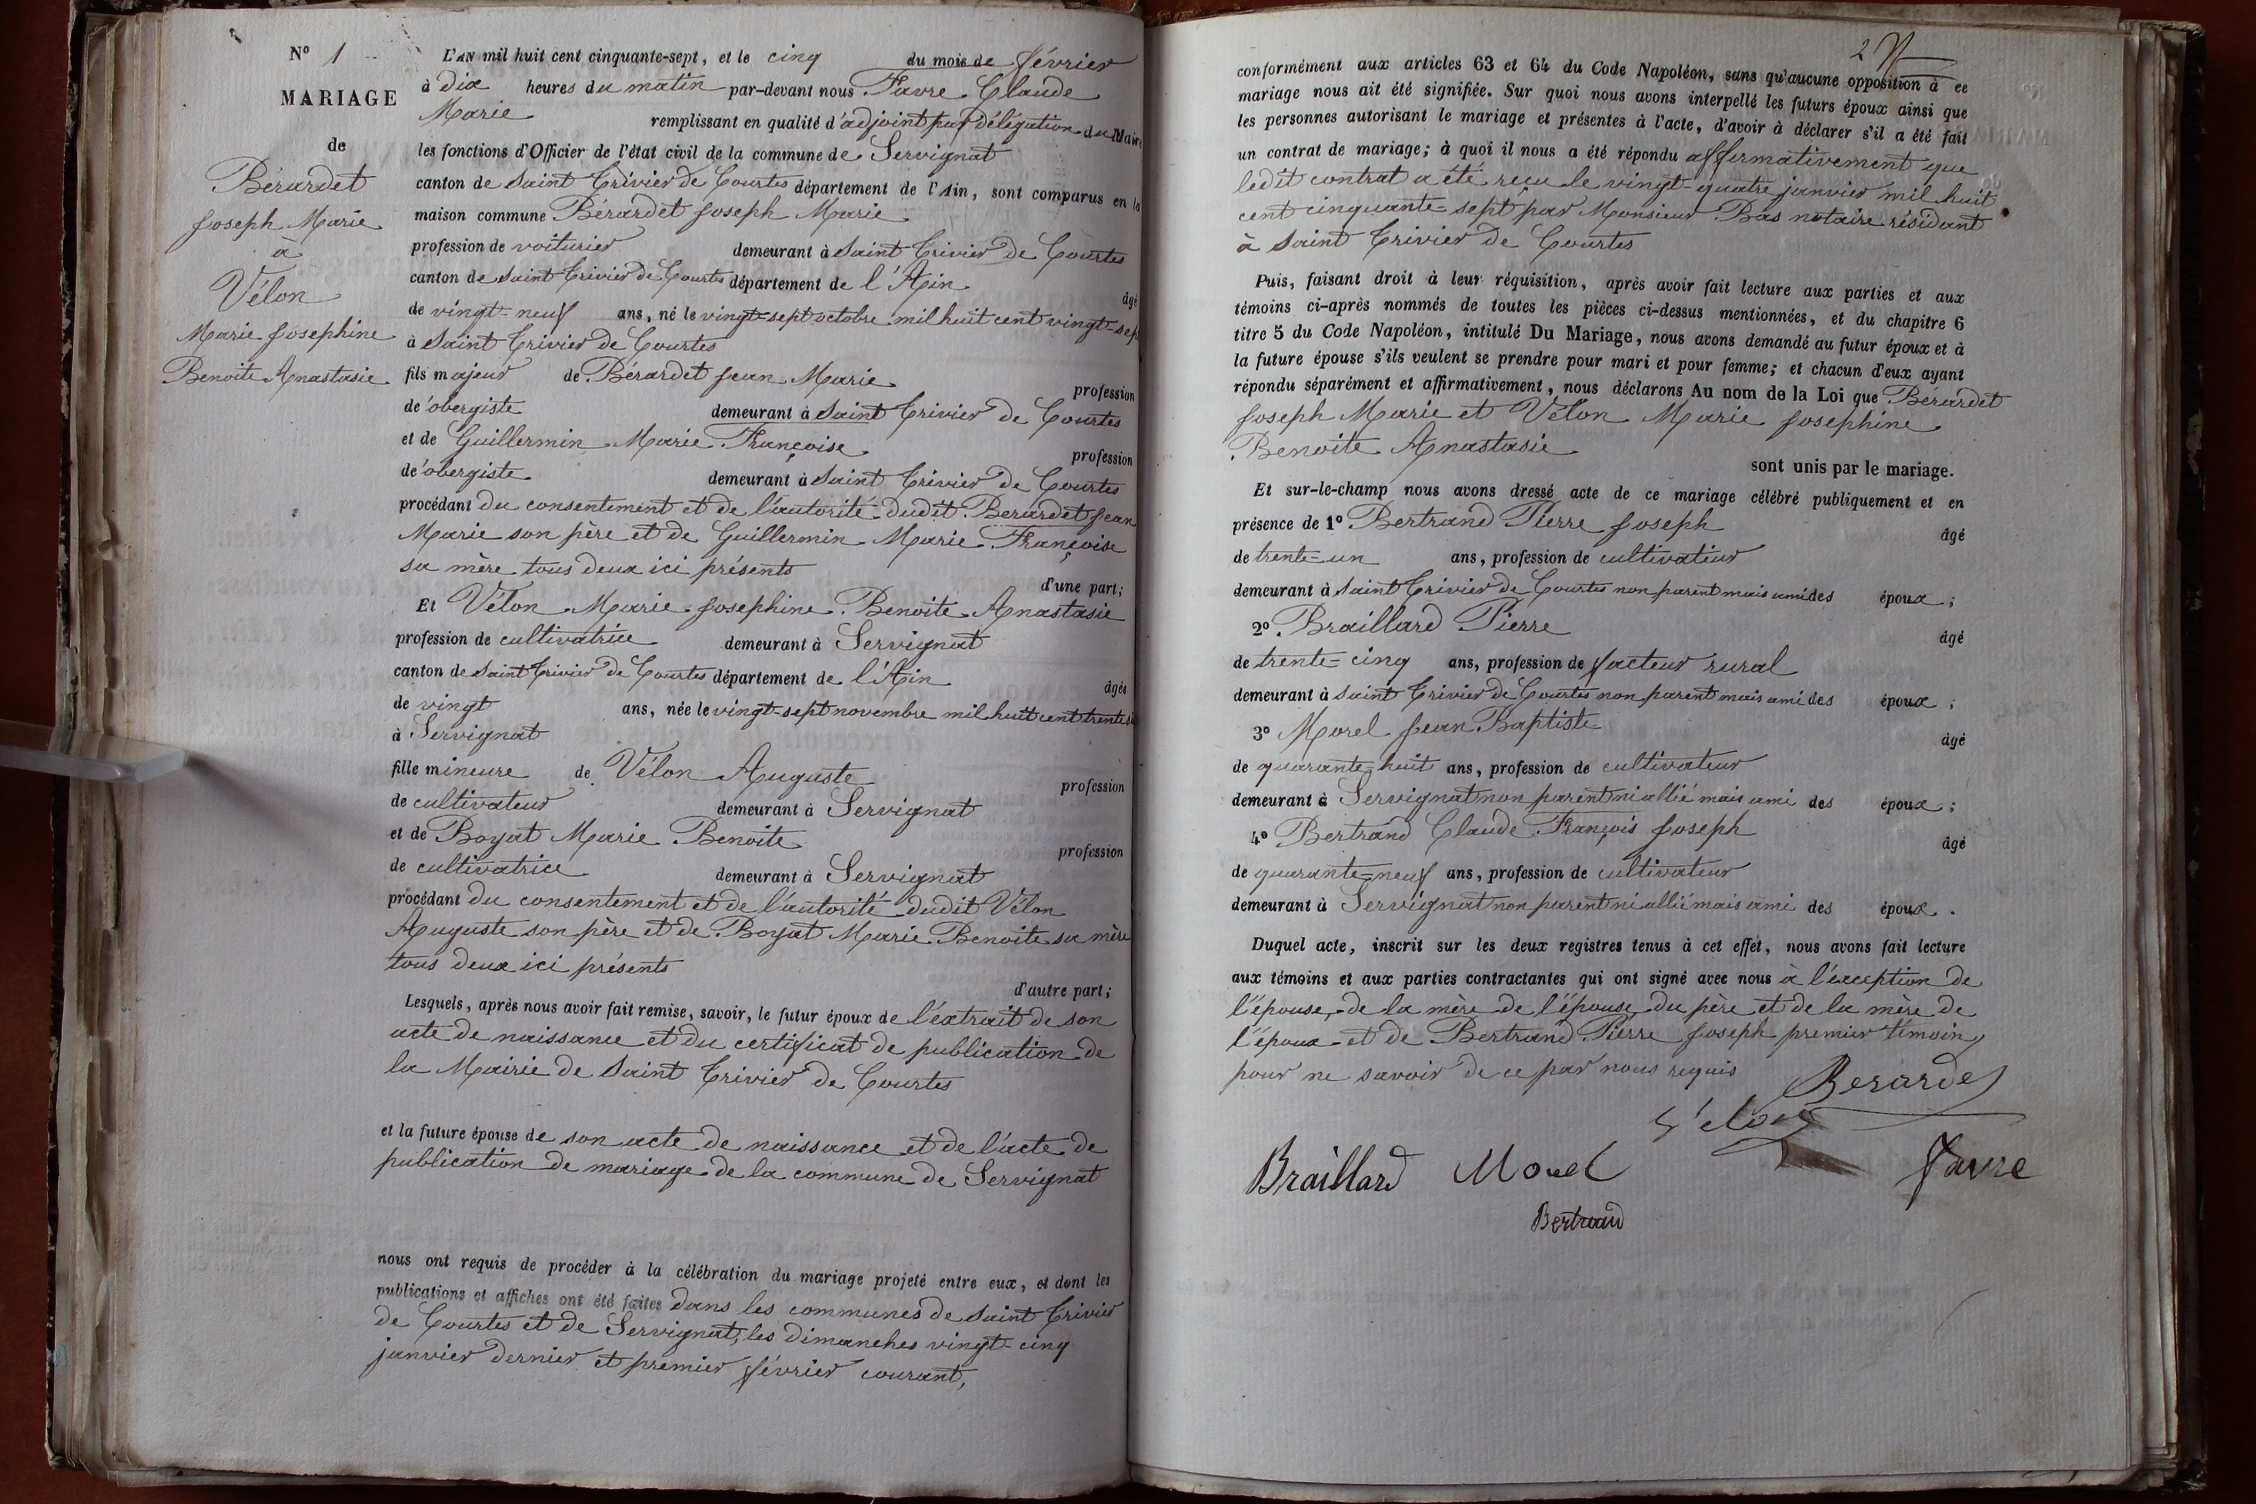 N° 1
MARIAGE
de
Bérardet
Joseph Marie
à
Vélon
Marie Josephine
Benoite Anastasie
L'AN mil huit cent cinquante-sept, et le cinq du mois de février
à dix heures du matin par-devant nous Favre Claude
Marie remplissant en qualité d'adjoint par délégation du Maire
les fonctions d'Officier de l'état civil de la commune de Servignat
canton de Saint Trivier de Courtes département de l'Ain, sont comparus en la
maison commune Bérardet Joseph Marie
profession de voiturier demeurant à Saint Trivier de Courtes
canton de Saint Trivier de Courtes département de l'Ain âgé
de vingt-neuf ans, né le vingt-sept octobre mil huit cent vingt-sept
à Saint Trivier de Courtes
fils majeur de Bérardet Jean Marie profession
de'obergiste demeurant à Saint Trivier de Courtes
et de Guillermin Marie Françoise profession
de'obergiste demeurant à Saint Trivier de Courtes
procédant du consentement et de l'autorité dudit Berardet Jean
Marie son père et de Guillermin Marie Françoise
sa mère tous deux ici présents d'une part;
Et Vélon Marie Josephine Benoite Anastasie
profession de cultivatrice demeurant à Servignat
canton de Saint Trivier de Courtes département de l'Ain âgée
de vingt ans, née le vingt-sept novembre mil huit cent trente
à Servignat
fille mineure de Vélon Auguste profession
de cultivateur demeurant à Servignat
et de Boyat Marie Benoite profession
de cultivatrice demeurant à Servignat
procédant du consentement et de l'autorité dudit Vélon
Auguste son père et de Boyat Marie Benoite sa mère
tous deux ici présents d'autre part;
Lesquels, après nous avoir fait remise, savoir, le futur époux de l'extrait de son
acte de naissance et du certificat de publication de
la Mairie de Saint Trivier de Courtes
et la future épouse de son acte de naissance et de l'acte de
publication de mariage de la commune de Servignat
nous ont requis de procéder à la célébration du mariage projeté entre eux, et dont les
publications et affiches ont été faites dans les communes de Saint Trivier
de Courtes et de Servignat, les dimanches vingt-cinq
janvier dernier et premier février courant,
2
conformément aux articles 63 et 64 du Code Napoléon, sans qu'aucune opposition à ce
mariage nous ait été signifiée. Sur quoi nous avons interpellé les futurs époux ainsi que
les personnes autorisant le mariage et présentes à l'acte, d'avoir à déclarer s'il a été fait
un contrat de mariage; à quoi il nous a été répondu affirmativement que
ledit contrat a été reçu le vingt-quatre janvier mil huit
cent cinquante-sept par Monsieur Bas notaire résidant
à Saint Trivier de Courtes
Puis, faisant droit à leur réquisition, après avoir fait lecture aux parties et aux
témoins ci-après nommés de toutes les pièces ci-dessus mentionnées, et du chapitre 6
titre 5 du Code Napoléon, intitulé Du Mariage, nous avons demandé au futur époux et à
la future épouse s'ils veulent se prendre pour mari et pour femme; et chacun d'eux ayant
répondu séparément et affirmativement, nous déclarons Au nom de la Loi que Bérardet
Joseph Marie et Vélon Marie Josephine
Benoite Anastasie sont unis par le mariage.
Et sur-le-champ nous avons dressé acte de ce mariage célébré publiquement et en
présence de 1° Bertrand Pierre Joseph âgé
de trente-un ans, profession de cultivateur
demeurant à Saint Trivier de Courtes non parent mais ami des époux;
2° Braillard Pierre âgé
de trente-cinq ans, profession de facteur rural
demeurant à Saint Trivier de Courtes non parent mais ami des époux;
3° Morel Jean Baptiste âgé
de quarante-huit ans, profession de cultivateur
demeurant à Servignat non parent ni allié mais ami des époux;
4° Bertrand Claude François Joseph âgé
de quarante-neuf ans, profession de cultivateur
demeurant à Servignat non parent ni allié mais ami des époux.
Duquel acte, inscrit sur les deux registres tenus à cet effet, nous avons fait lecture
aux témoins et aux parties contractantes qui ont signé avec nous à l'exception de
l'épouse, de la mère de l'épouse, du père et de la mère de
l'époux et de Bertrand Pierre Joseph premier témoin,
pour ne savoir de ce par nous requis Berardet
Vélon
Braillard Morel Favre
Bertrand